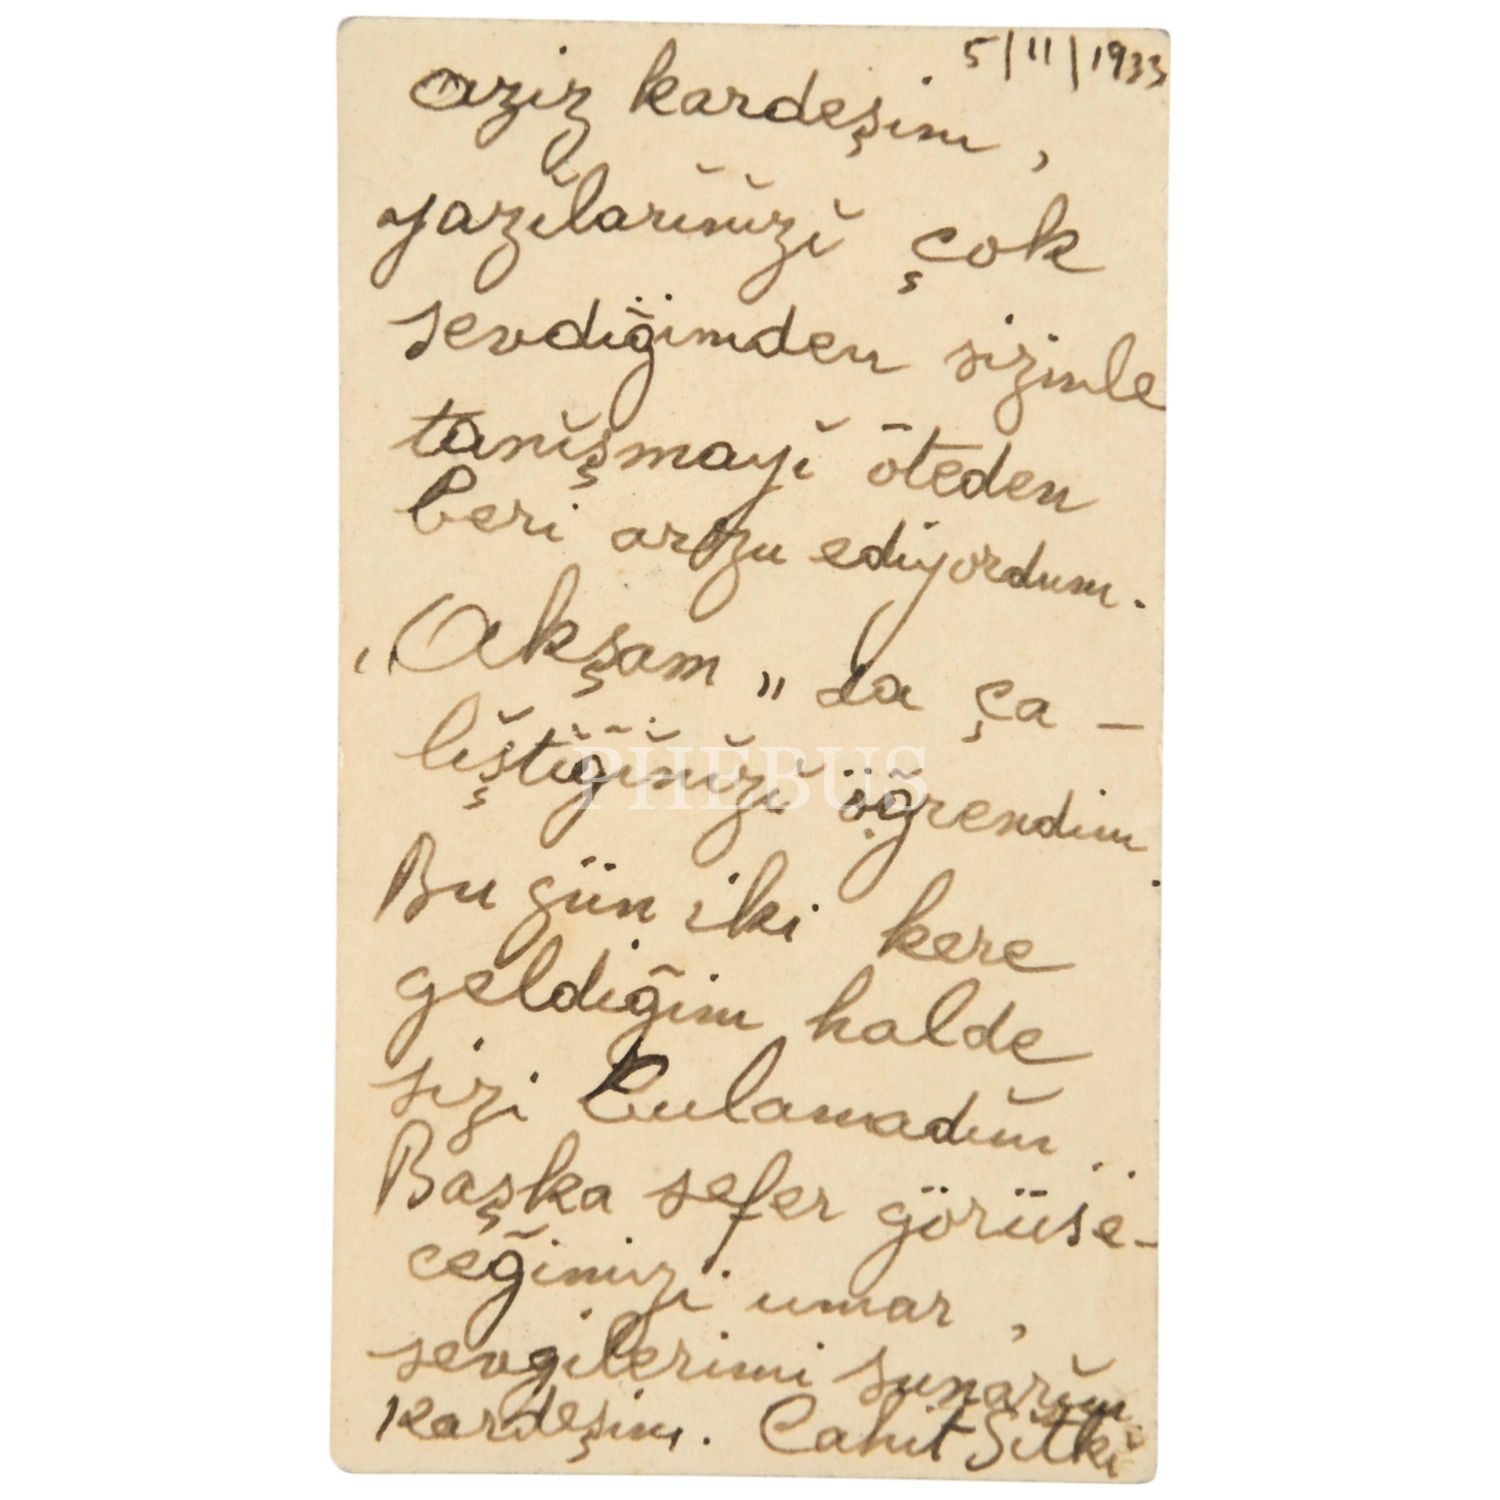 5/11/1933
Aziz kardeşim,
yazĭlarĭnĭzĭ çok
sevdiğimden sizinle
tanĭşmayĭ öteden
beri arzu ediyordum.
„Akşam„ da ça-
lĭştĭğĭnĭzĭ öğrendim.
Bu gün iki kere
geldiğim halde
sizi bulamadĭm.
Başka sefer görüşe-
ceğimizi umar,
sevgilerimi sunarĭm
kardeşim. Cahit Sĭtkĭ
PHEBUS